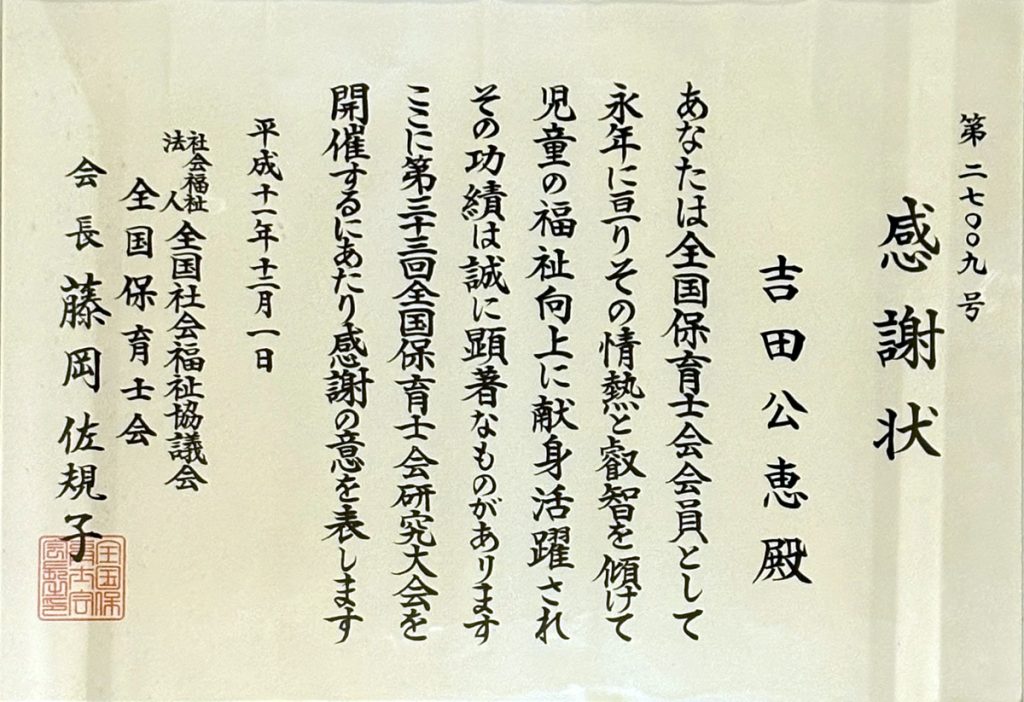 第二七〇〇九号
感謝状
吉田公恵殿
あなたは全国保育士会会員として
永年に亘りその情熱と叡智を傾けて
児童の福祉向上に献身活躍され
その功績は誠に顕著なものがあります
ここに第三十三回全国保育士会研究大会を
開催するにあたり感謝の意を表します
平成十一年十二月一日
社会福祉法人 全国社会福祉協議会
全国保育士会
会長 藤岡佐規子